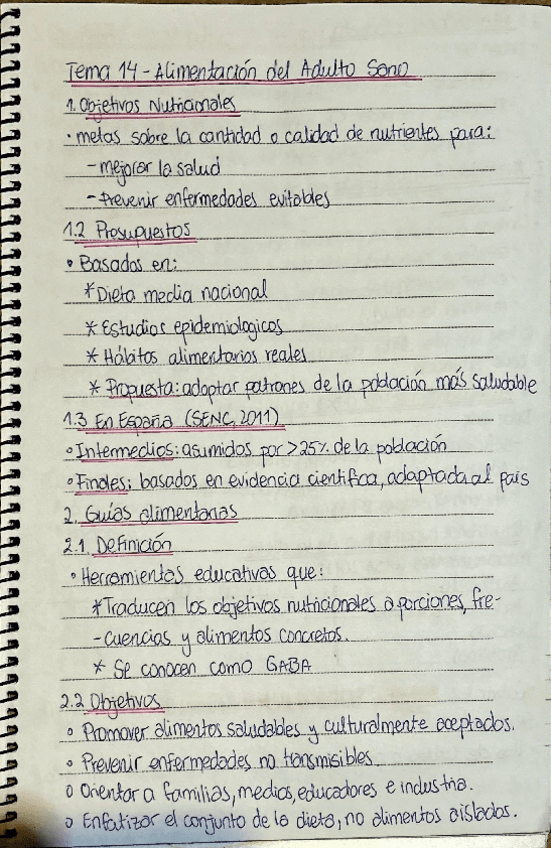 Tema 14 - Alimentación del Adulto Sano
1. Objetivos Nutricionales
• metas sobre la cantidad o calidad de nutrientes para:
- mejorar la salud
- Prevenir enfermedades evitables
1.2 Presupuestos
• Basados en:
* Dieta media nacional
* Estudios epidemiologicos
* Hábitos alimentarios reales
* Propuesta: adoptar patrones de la población más saludable
1.3 En España (SENC, 2011)
• Intermedios: asumidos por >25% de la población
• Finales: basados en evidencia científica, adaptada al país
2. Guías alimentarias
2.1. Definición
• Herramientas educativas que:
* Traducen los objetivos nutricionales a porciones, fre-
- cuencias y alimentos concretos.
* Se conocen como GABA
2.2 Objetivos
• Promover alimentos saludables y culturalmente aceptados.
• Prevenir enfermedades no transmisibles
• Orientar a familias, medios, educadores e industria.
• Enfatizar el conjunto de la dieta, no alimentos aislados.